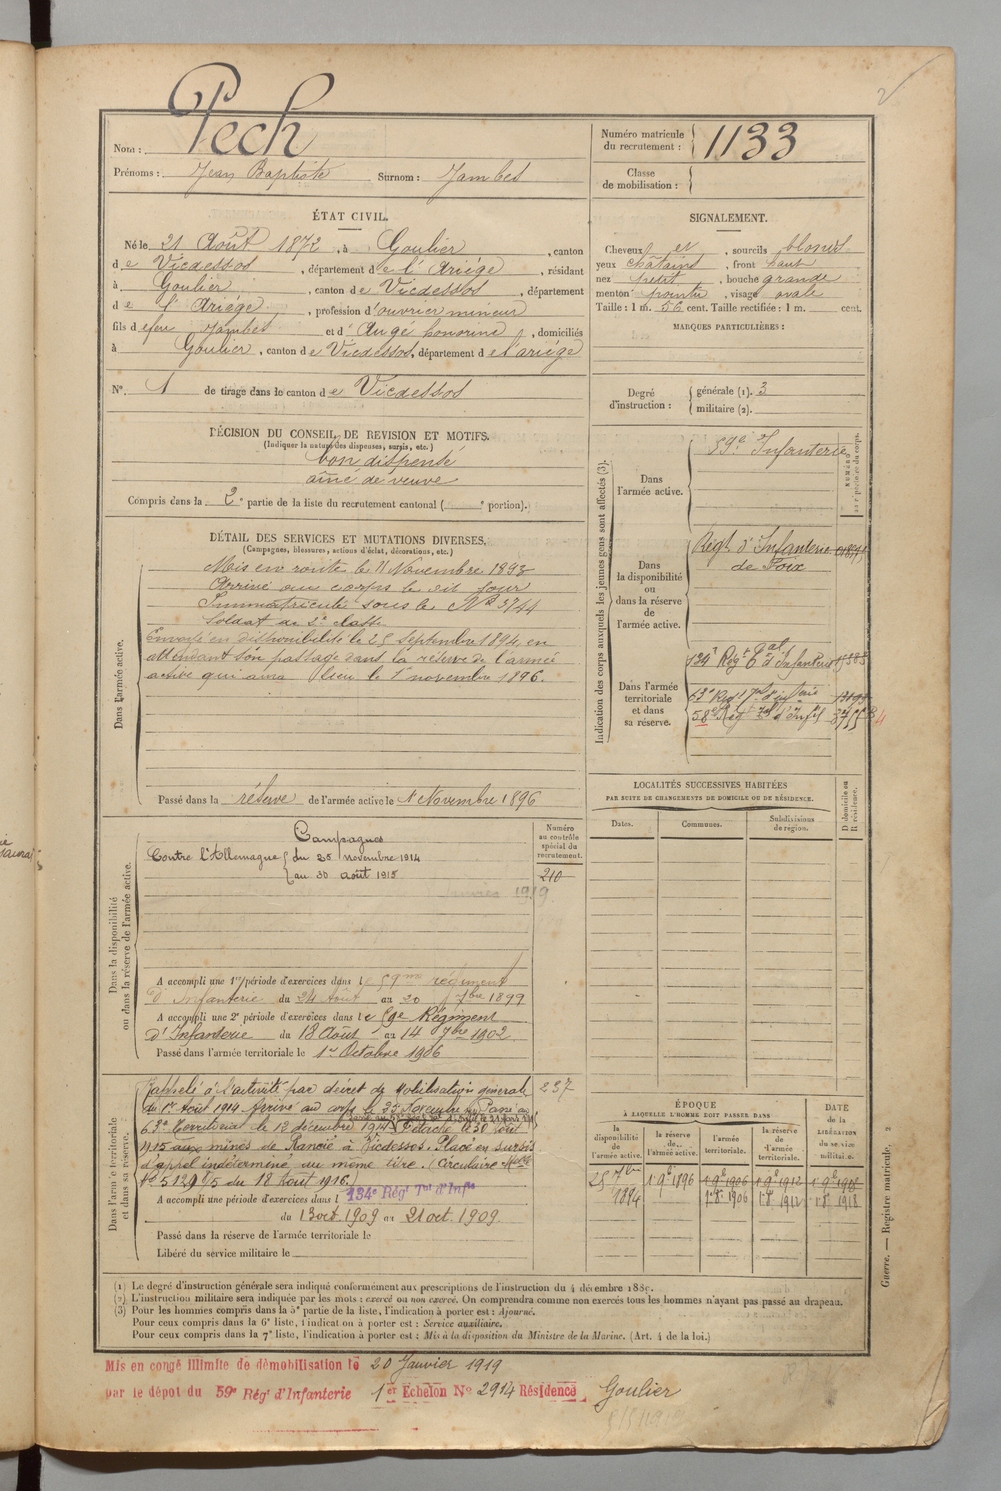 2
Nom : Pech
Prénoms : Jean Baptiste Surnom : Jambes
Numéro matricule du recrutement : 1133
Classe de mobilisation :
ÉTAT CIVIL.
Né le 21 Août 1872, à Goulier, canton
de Vicdessos, département de l'Ariége, résidant
à Goulier, canton de Vicdessos, département
de l'Ariége, profession d'ouvrier mineur
fils de feu Jambes et d'Augé honorine, domiciliés
à Goulier, canton de Vicdessos, département de l'ariége
SIGNALEMENT.
Cheveux et, sourcils blonds
yeux châtains, front haut
nez petit, bouche grande
menton pointu, visage ovale
Taille : 1 m. 56 cent. Taille rectifiée : 1 m. cent.
MARQUES PARTICULIÈRES :
N° 1 de tirage dans le canton de Vicdessos
Degré d'instruction : générale (1). 3
militaire (2).
DÉCISION DU CONSEIL DE REVISION ET MOTIFS.
(Indiquer la nature des dispenses, sursis, etc.)
bon dispensé
aîné de veuve
Compris dans la 2e partie de la liste du recrutement cantonal ( e portion).
DÉTAIL DES SERVICES ET MUTATIONS DIVERSES.
(Campagnes, blessures, actions d'éclat, décorations, etc.)
Dans l'armée active.
Mis en route le 11 Novembre 1893
Arrivé au corps le dit jour
Immatriculé sous le N° 3744
Soldat de 2e classe
Envoyé en disponibilité le 25 Septembre 1894, en
attendant son passage dans la réserve de l'armée
active qui aura lieu le 1 novembre 1896.
Passé dans la réserve de l'armée active le 1 Novembre 1896
Indication des corps auxquels les jeunes gens sont affectés (3).
NUMÉRO
Dans l'armée active.
59e Infanterie
Dans la disponibilité ou dans la réserve de l'armée active.
Régt d'Infanterie
de Foix
Dans l'armée territoriale et dans sa réserve.
134e Régt tal d'Infanterie
63e
58e Régt tal d'Infie
LOCALITÉS SUCCESSIVES HABITÉES
PAR SUITE DE CHANGEMENTS DE DOMICILE OU DE RÉSIDENCE.
Dates. Communes. Subdivisions de région. D domicile ou R résidence.
Dans la disponibilité ou dans la réserve de l'armée active.
Numéro au contrôle spécial du recrutement.
210
Campagnes
Contre l'Allemagne du 25 novembre 1914
au 30 août 1915
1919
A accompli une 1re période d'exercices dans le 59me régiment
d'Infanterie du 24 Août au 20 7bre 1899
A accompli une 2e période d'exercices dans le 59e Régiment
d'Infanterie du 18 Août au 14 7bre 1902
Passé dans l'armée territoriale le 1er Octobre 1906
Dans l'armée territoriale et dans sa réserve.
Rappelé à l'activité par décret de Mobilisation général
du 1er Août 1914. Arrivé au corps le 25 Novembre Passé au
63e Territorial le 12 décembre 1914. Détaché le 30 août
1915 aux mines de Rancié à Vicdessos. Placé en sursis
d'appel indéterminé au même titre. (Circulaire Melle
N° 5129 1/5 du 18 Août 1916.)
237
A accompli une période d'exercices dans l 134e Régt Tal d'Infie
du 13 oct. 1909 au 21 oct. 1909
Passé dans la réserve de l'armée territoriale le
Libéré du service militaire le
ÉPOQUE
À LAQUELLE L'HOMME DOIT PASSER DANS
la disponibilité de l'armée active.
la réserve de l'armée active.
l'armée territoriale.
la réserve de l'armée territoriale.
DATE de la LIBÉRATION du service militaire.
25 7bre 1894 1 9e 1896 1 9e 1906 1 9e 1912 1 9e 1918
1 8e 1906 1 8e 1912 1 8e 1918
Guerre. — Registre matricule. 2
(1) Le degré d'instruction générale sera indiqué conformément aux prescriptions de l'instruction du 4 décembre 1889.
(2) L'instruction militaire sera indiquée par les mots : exercé ou non exercé. On comprendra comme non exercés tous les hommes n'ayant pas passé au drapeau.
(3) Pour les hommes compris dans la 5e partie de la liste, l'indication à porter est : Ajourné.
Pour ceux compris dans la 6e liste, l'indication à porter est : Service auxiliaire.
Pour ceux compris dans la 7e liste, l'indication à porter est : Mis à la disposition du Ministre de la Marine. (Art. 4 de la loi.)
Mis en congé illimité de démobilisation le 20 Janvier 1919
par le dépôt du 59e Régt d'Infanterie 1er Echelon N° 2914 Résidence Goulier